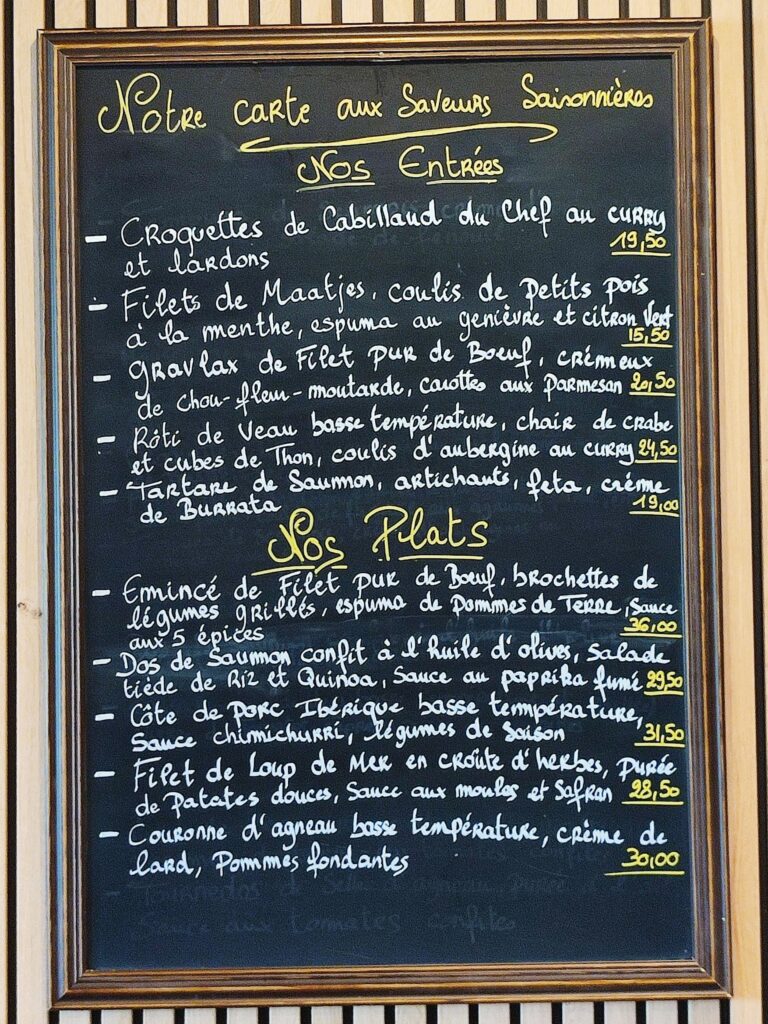 Notre carte aux Saveurs Saisonnières
Nos Entrées
- Croquettes de Cabillaud du Chef au curry
et lardons 19,50
- Filets de Maatjes, coulis de petits pois
à la menthe, espuma au genièvre et citron vert
15,50
- Gravlax de Filet pur de Boeuf, crémeux
de chou-fleur-moutarde, carottes aux Parmesan 20,50
- Rôti de Veau basse température, chair de crabe
et cubes de Thon, coulis d'aubergine au curry 24,50
- Tartare de Saumon, artichauts, feta, crème
de Burrata 19,00
Nos Plats
- Emincé de Filet pur de Boeuf, brochettes de
légumes grillés, espuma de Pommes de Terre, Sauce
aux 5 épices 36,00
- Dos de Saumon confit à l'huile d'olives, salade
tiède de Riz et Quinoa, Sauce au paprika fumé 29,50
- Côte de porc Ibérique basse température,
Sauce chimichurri, légumes de Saison 31,50
- Filet de Loup de Mer en croûte d'herbes, purée
de Patates douces, Sauce aux moules et Safran 28,50
- Couronne d'agneau basse température, crème de
lard, Pommes fondantes 30,00
Sauce aux tomates confites